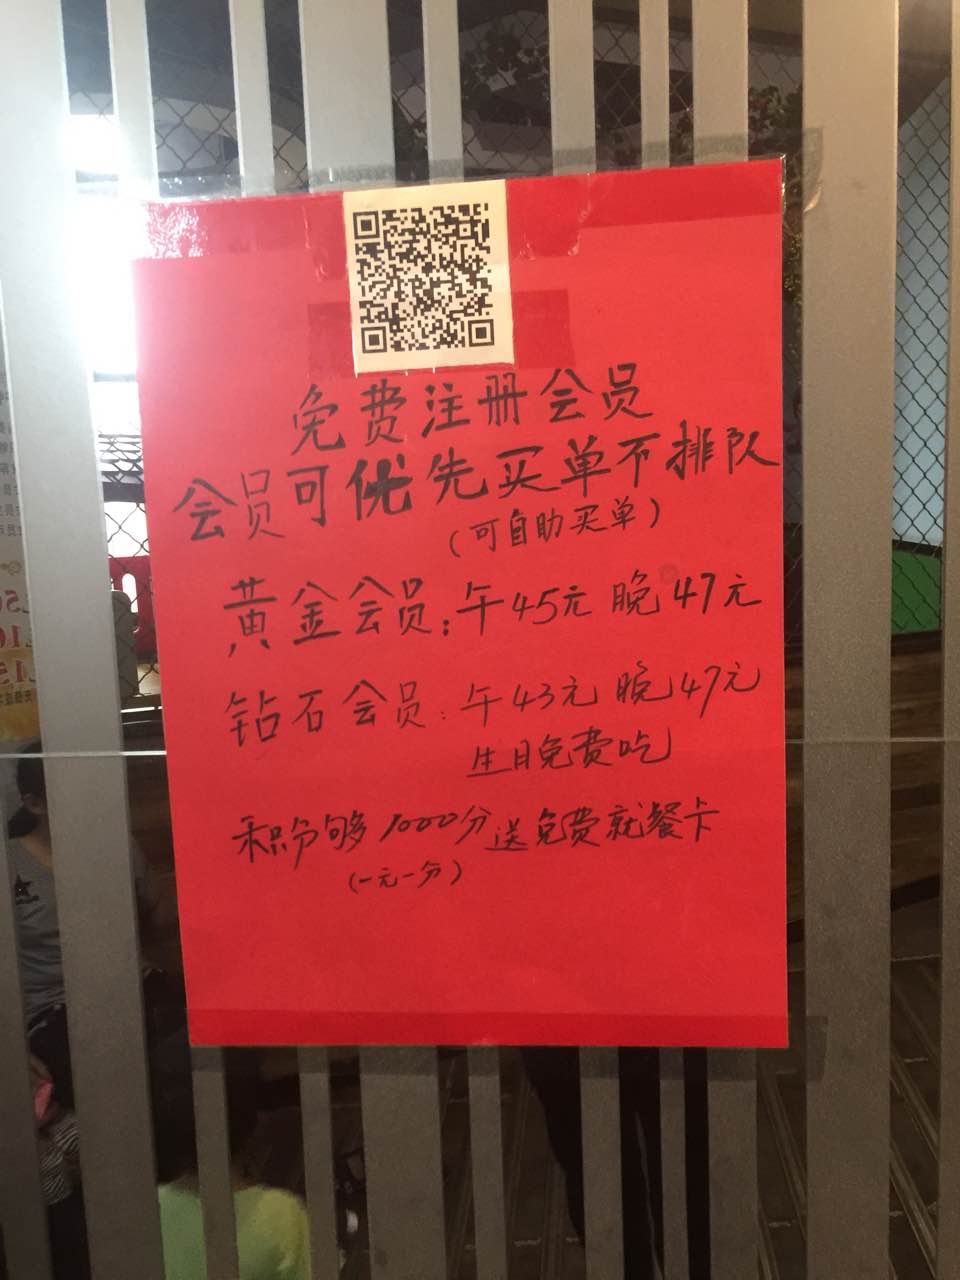 免费注册会员
会员可优先买单不排队
(可自助买单)
黄金会员:午45元 晚47元
钻石会员:午43元 晚47元
生日免费吃
积分够1000分送免费就餐卡
(一元一分)